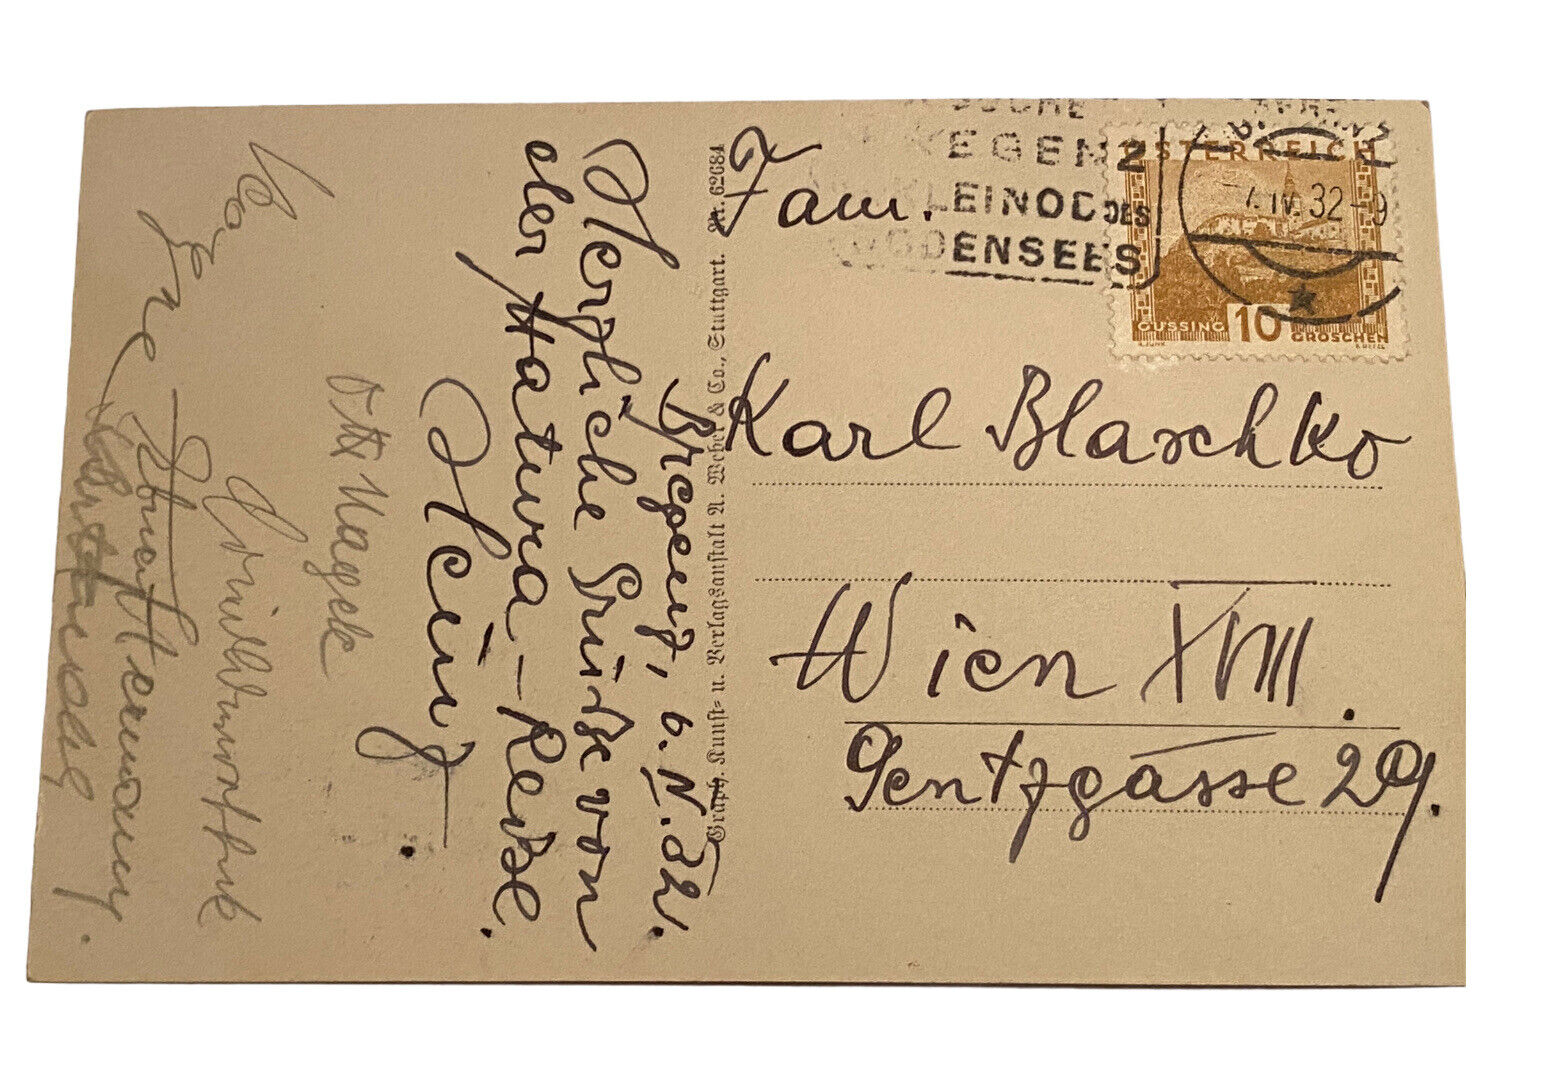 Bregenz, 6.IV.32.
Herzliche Grüße von
der Matura-Reise.
Heinz
Otto Nagele
Graph. Kunst- u. Verlagsanstalt A. Weber & Co., Stuttgart. Nr. 62684
BREGENZ
KLEINOD DES
BODENSEES
7.IV.32-9
ÖSTERREICH
GÜSSING 10 GROSCHEN
Fam.
Karl Blaschko
Wien XVIII.
Gentzgasse 29.